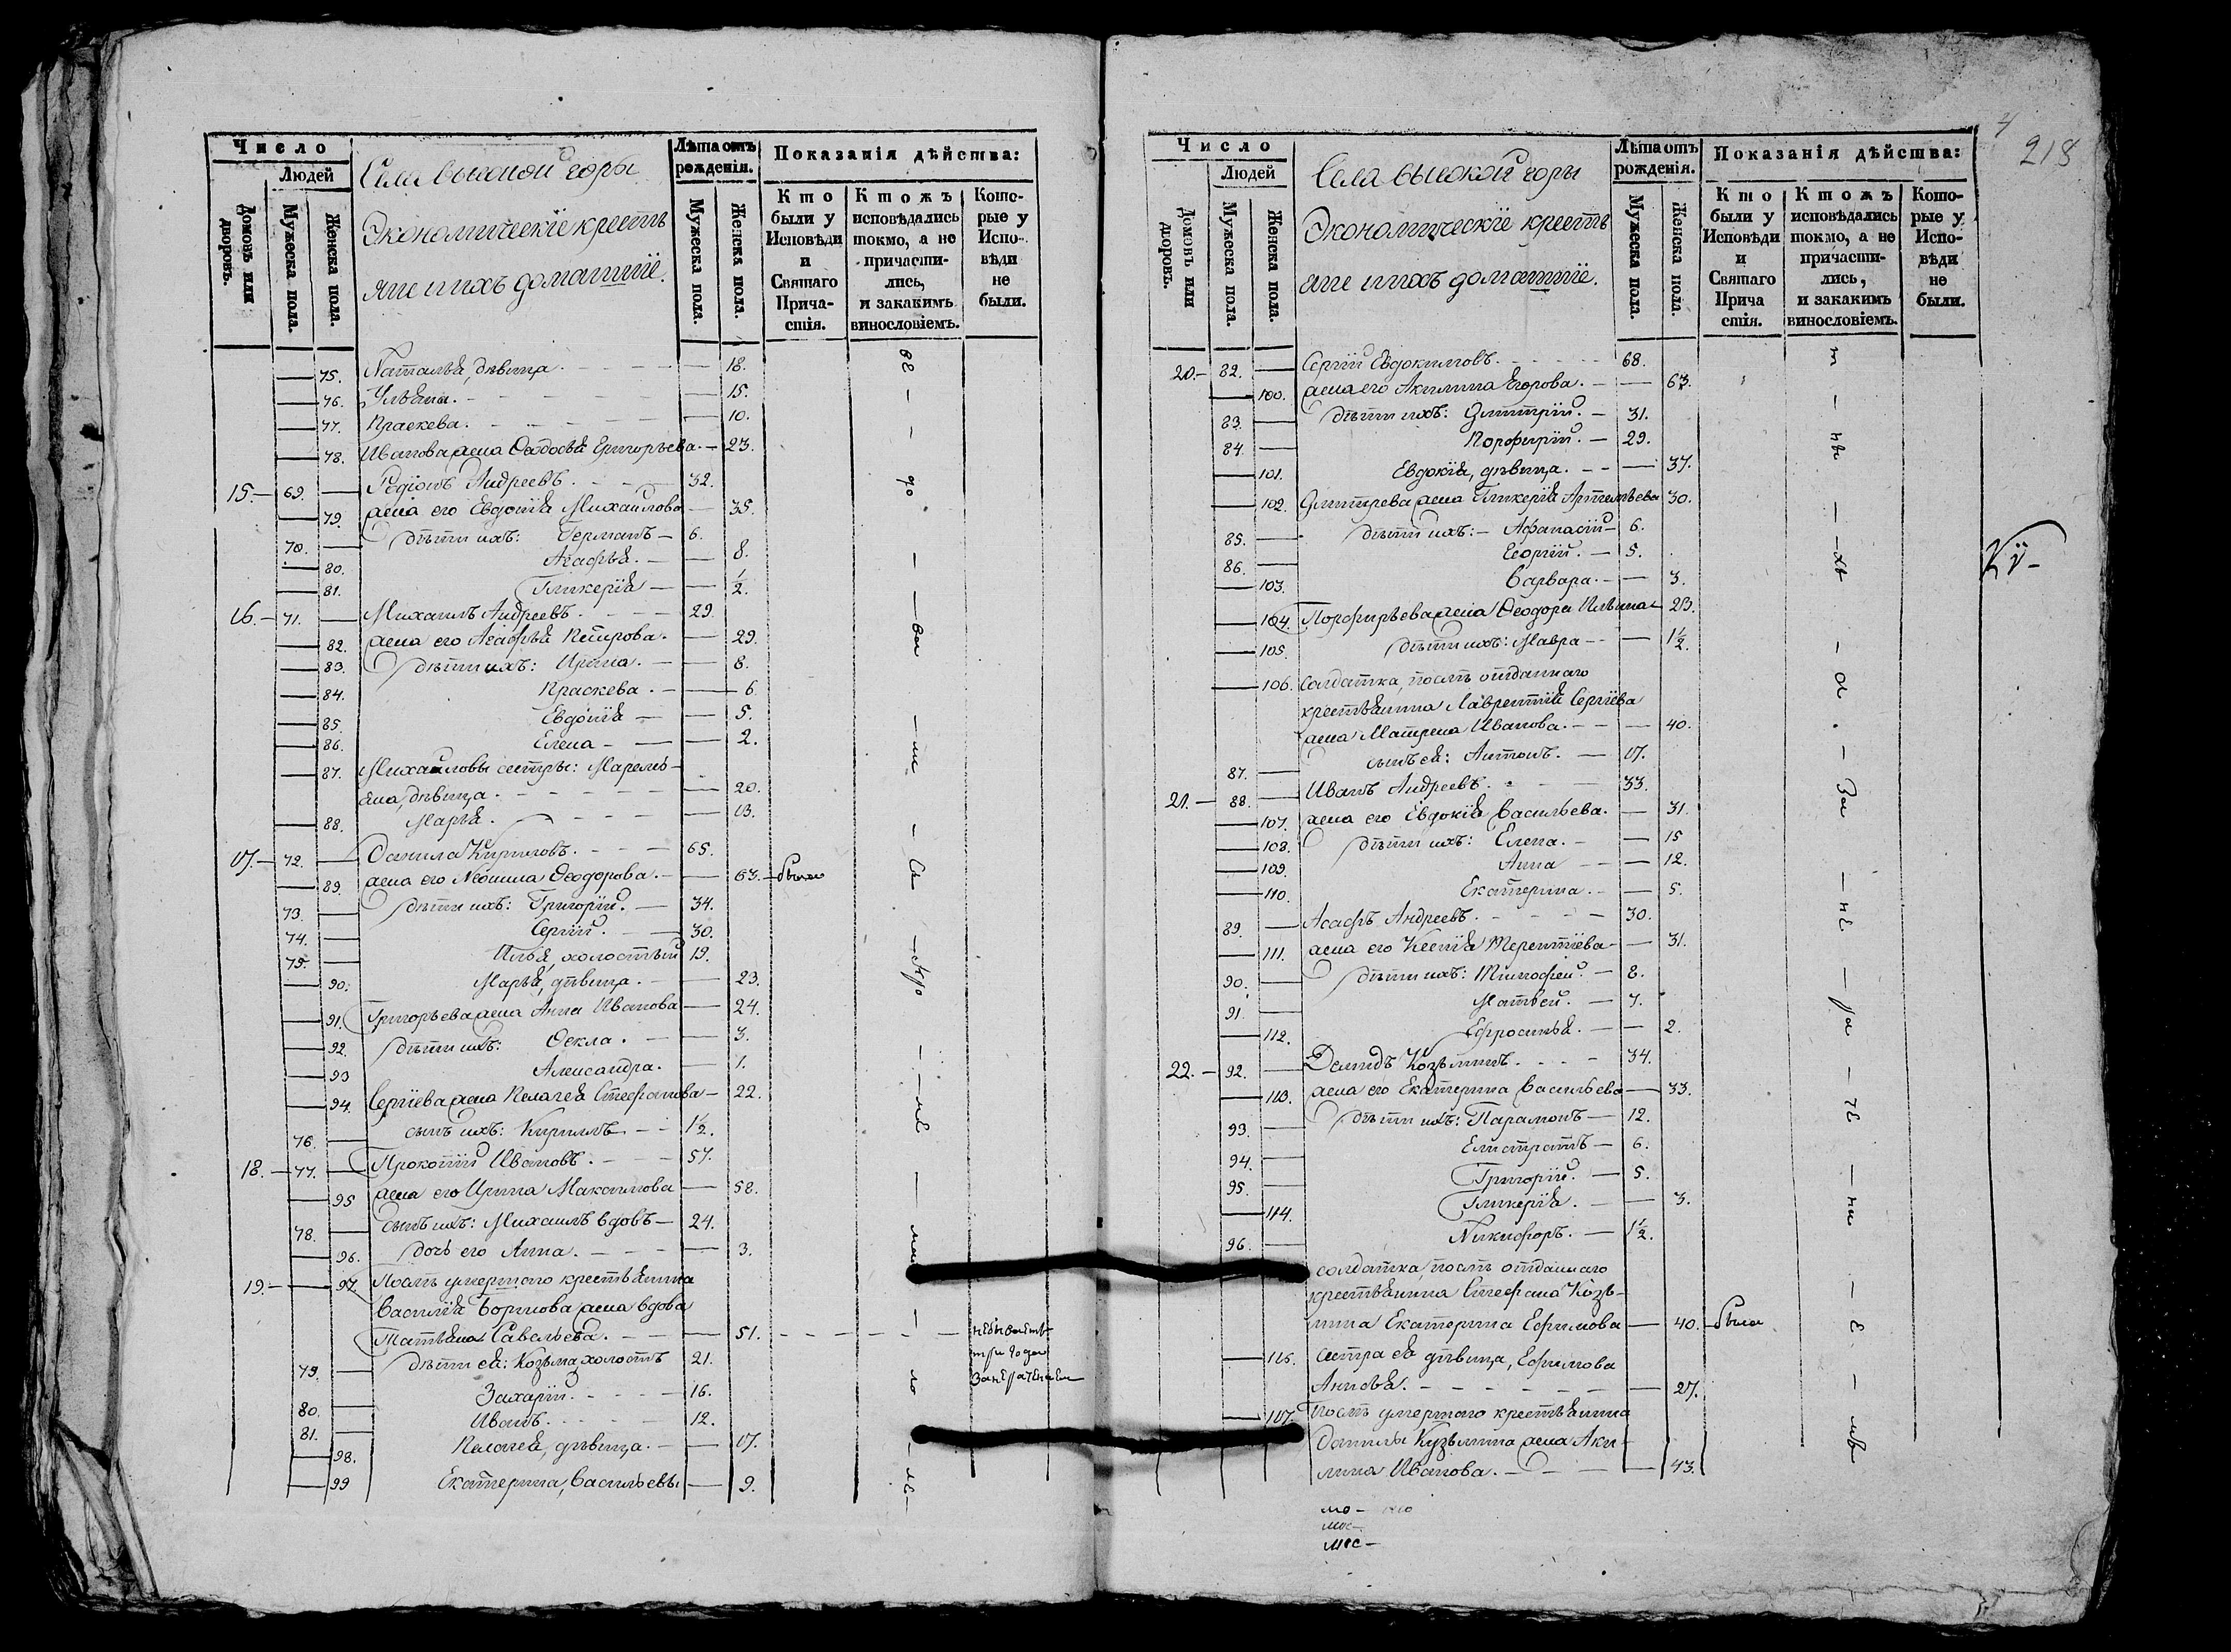 Число
Людей
Домовъ или дворовъ.
Мужеска пола.
Женска пола.
Села высокой горы
Экономическїе крестъ
яне и ихъ домашнїе.
Лѣта отъ рожденія.
Мужеска пола.
Женска пола.
Показанія дѣйства:
Кто были у Исповѣди и Святаго Причастія.
Ктожъ исповѣдались токмо, а не причастились, и закакимъ винословіемъ.
Которые у Исповѣди не были.
75. Наталья, дѣвица. 18.
76. Ульяна. 15.
77. Праскева. 10.
78. Иванова жена Ѳеодосья Григорьева. 23.
15. 69. Родіонъ Андреевъ. 32.
79. жена его Евдокїя Михайлова 35.
70. дѣти ихъ: Германъ 6.
80. Агафья. 8.
81. Гликерїя 1/2.
16. 71. Михаилъ Андреевъ. 29.
82. жена его Агафья Петрова. 29.
83. дѣти ихъ: Ирина. 8.
84. Праскева. 6.
85. Евдокїя 5.
86. Елена 2.
87. Михайловы сестры: Маремь-
яна, дѣвица. 20.
88. Марья. 13.
17. 72. Данила Кириловъ. 65.
89. жена его Неонила Ѳеодорова. 63. была
73. дѣти ихъ: Григорїй. 34.
74. Сергїй. 30.
75. Илья, холостый 19.
90. Марья, дѣвица. 23.
91. Григорьева жена Анна Иванова 24.
92. дѣти ихъ: Ѳекла. 3.
93 Александра. 1.
94. Сергїева жена Пелагея Стефанова 22.
76. сынъ ихъ: Кириллъ 1 1/2.
18. 77. Прокопїй Ивановъ. 57.
95 жена его Ирина Максимова 58.
78. сынъ ихъ: Михаилъ вдовъ 24.
96. дочь его Анна. 3.
19. 97. Послѣ умершаго крестьянина
Василїя Борисова жена вдова
Татьяна Савельева. 51. небываетъ
три года
занерачением
79. дѣти ея: Козьма холостъ 21.
80. Захарїй. 16.
81. Иванъ. 12.
98. Пелагея, дѣвица. 17.
99 Екатерина, Васильевы 9.
4
218
Число
Людей
Домовъ или дворовъ.
Мужеска пола.
Женска пола.
Села высокой горы
Экономическїе крестъ
яне и ихъ домашнїе.
Лѣта отъ рожденія.
Мужеска пола.
Женска пола.
Показанія дѣйства:
Кто были у Исповѣди и Святаго Причастія.
Ктожъ исповѣдались токмо, а не причастились, и закакимъ винословіемъ.
Которые у Исповѣди не были.
20. 82. Сергїй Евдокимовъ. 68.
100. жена его Акилина Егорова. 63.
83. дѣти ихъ: Дмитрїй. 31.
84. Порфирїй. 29.
101. Евдокїя, дѣвица. 37.
102. Дмитрева жена Гликерїя Артемьева 30.
85. дѣти ихъ: Афанасїй 6.
86. Георгїй. 5.
103. Варвара. 3.
104. Порфирьева жена Ѳеодора Ильина 23.
105. дѣти ихъ: Мавра 1 1/2.
106. Салдатка, послѣ отданнаго
крестьянина Лаврентїя Сергїева
жена Матрена Иванова. 40.
87. сынъ ея: Антонъ. 17.
21. 88. Иванъ Андреевъ. 33.
107. жена его Евдокїя Васильева. 31.
108. дѣти ихъ: Елена. 15
109. Анна 12.
110. Екатерина. 5.
89. Агафъ Андреевъ. 30.
111. жена его Ксенїя Терентїева 31.
90. дѣти ихъ: Тимофей. 8.
91. Матвей. 7.
112. Ефросинья. 2.
22. 92. Демидъ Козьминъ. 34.
113. жена его Екатерина Васильева 33.
93. дѣти ихъ: Парамонъ 12.
94. Елистратъ 6.
95. Григорїй. 5.
114. Гликерїя. 3.
96. Никифоръ. 1 1/2.
солдатка, послѣ отданнаго
крестьянина Стефана Козь-
мина Екатерина Ефимова 40. была
116. сестра ея дѣвица, Ефимова
Анисья. 27.
117. Послѣ умершаго крестьянина
Данилы Кузьмина жена Аки-
лина Иванова. 43.